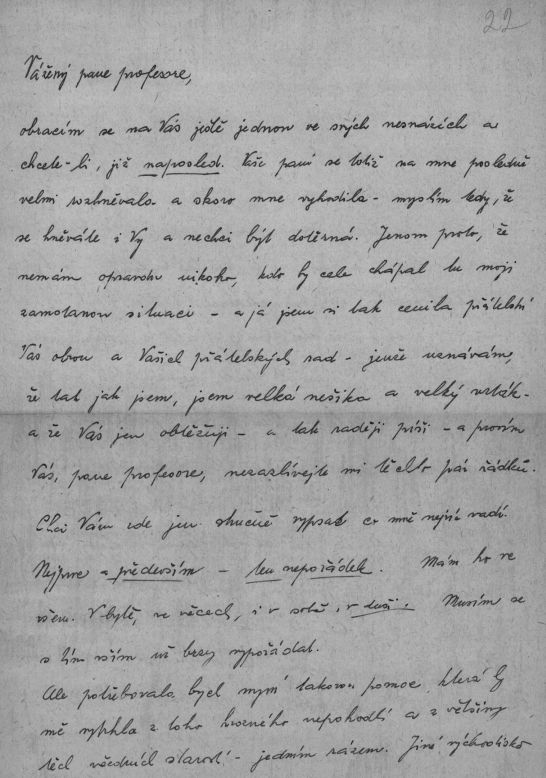 22
Vážený pane profesore,
obracím se na Vás ještě jednou ve svých nesnázích a
chcete-li, již naposled. Vaše paní se totiž na mne posledně
velmi rozhněvala a skoro mne vyhodila - myslím tedy, že
se hněváte i Vy a nechci být dotěrná. Jenom proto, že
nemám opravdu nikoho, kdo by cele chápal tu moji
zamotanou situaci - a já jsem si tak cenila přátelství
Vás obou a Vašich přátelských rad - jenže uznávám,
že tak jak jsem, jsem velká nešika a velký vrták -
a že Vás jen obtěžuji - a tak raději píši - a prosím
Vás, pane profesore, nezazlívejte mi těchto pár řádků.
Chci Vám zde jen stručně vypsat co mně nejvíc vadí.
Nejprve a především - ten nepořádek. Mám ho ve
všem. V bytě, ve věcech, i v sobě, v duši. Musím se
s tím vším už brzy vypořádat.
Ale potřebovala bych nyní takovou pomoc, která by
mě vytrhla z toho hrozného nepohodlí a z většiny
těch všedních starostí - jedním rázem. Jiné východisko